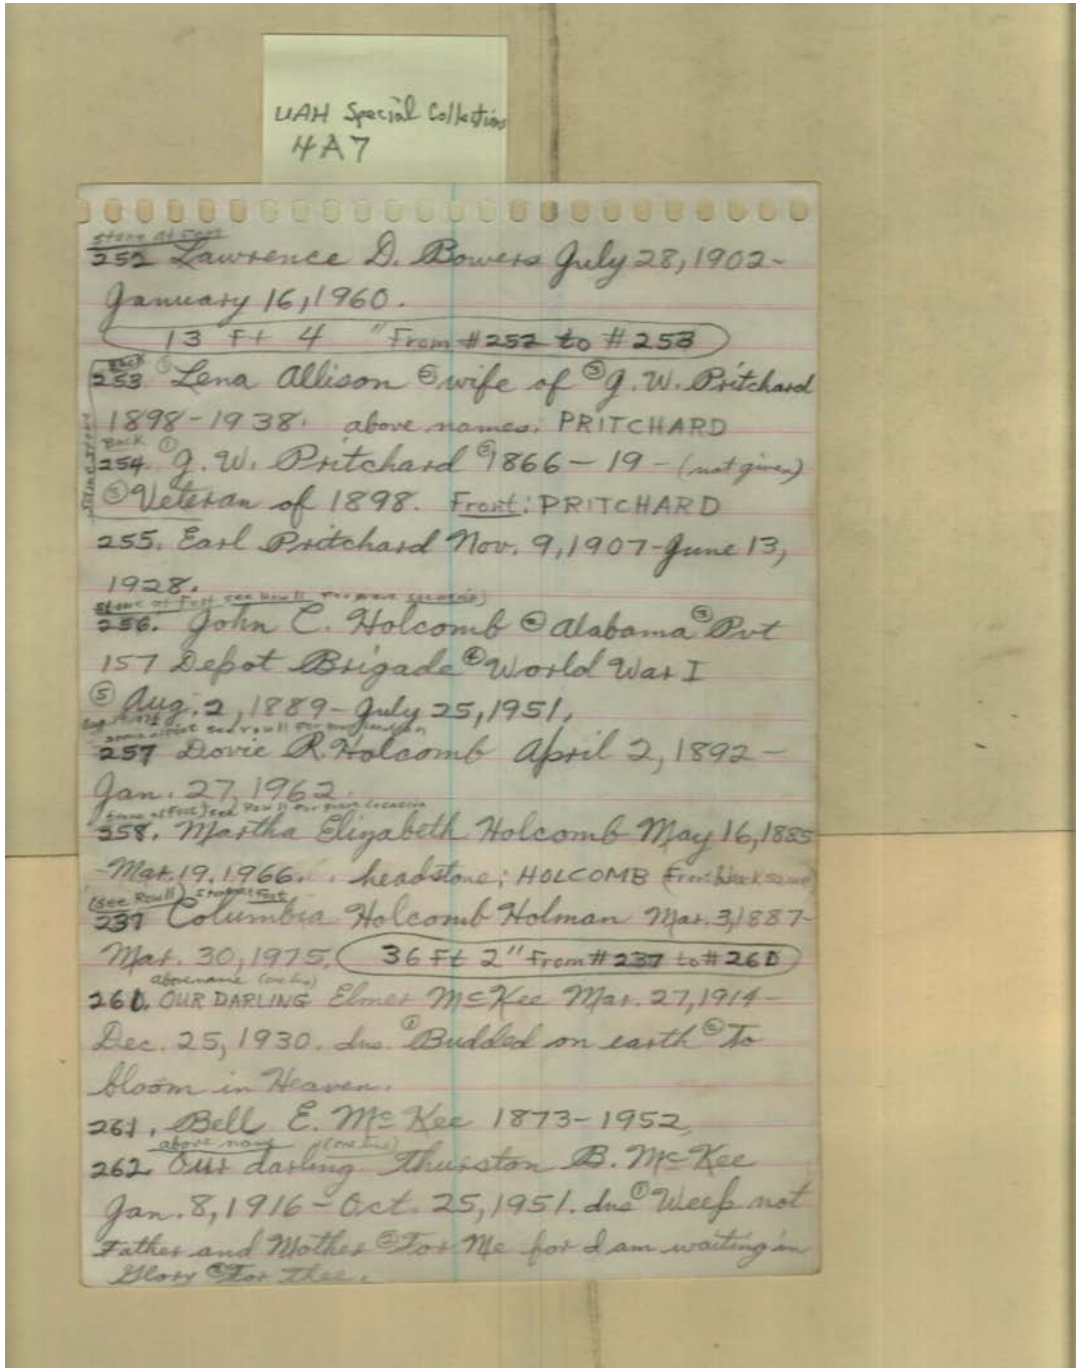 UAH Special Collections
4A7
stone at foot
252 Lawrence D. Bowers July 28, 1902-
January 16, 1960.
13 ft 4 " From #252 to #253
Back
253. ① Lena Allison ② wife of ③ G. W. Pritchard
1898-1938. above names: PRITCHARD
same stone
Back
254. ① G. W. Pritchard ② 1866 - 19 - (not given)
③ Veteran of 1898. Front: PRITCHARD
255. Earl Pritchard Nov. 9, 1907-June 13,
1928.
stone at foot see Row 11 for grave location)
256. John C. Holcomb ② Alabama ③ Pvt
157 Depot Brigade ④ World War I
⑤ Aug. 2, 1889-July 25, 1951.
see row 11 for
257 Dovie R. Holcomb April 2, 1892-
Jan. 27, 1962.
stone at foot) see Row 11 for grave location
358. Martha Elizabeth Holcomb May 16, 1885
-Mar. 19, 1966. headstone; HOLCOMB (Front & back same)
(see Row 11) stone at foot
237 Columbia Holcomb Holman Mar. 3, 1887-
Mar. 30, 1975. 36 ft 2" From #237 to #260
above name (one line)
260. OUR DARLING Elmer McKee Mar. 27, 1914-
Dec. 25, 1930. dns ① Budded on earth ② To
bloom in Heaven.
261. Bell E. McKee 1873-1952.
above name (one line)
262. Our darling Thurston B. McKee
Jan. 8, 1916-Oct. 25, 1951. dns ① Weep not
Father and Mother ② For Me for I am waiting in
Glory ③ For thee.